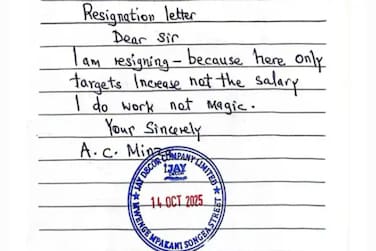 Resignation letter
Dear Sir
I am resigning - because here only
targets Increase not the salary
I do work not Magic.
Your Sincerely
A. C. Minz
JAY DECOR COMPANY LIMITED
JAY
14 OCT 2025
MWENGE MPAKANI SONGEA STREET